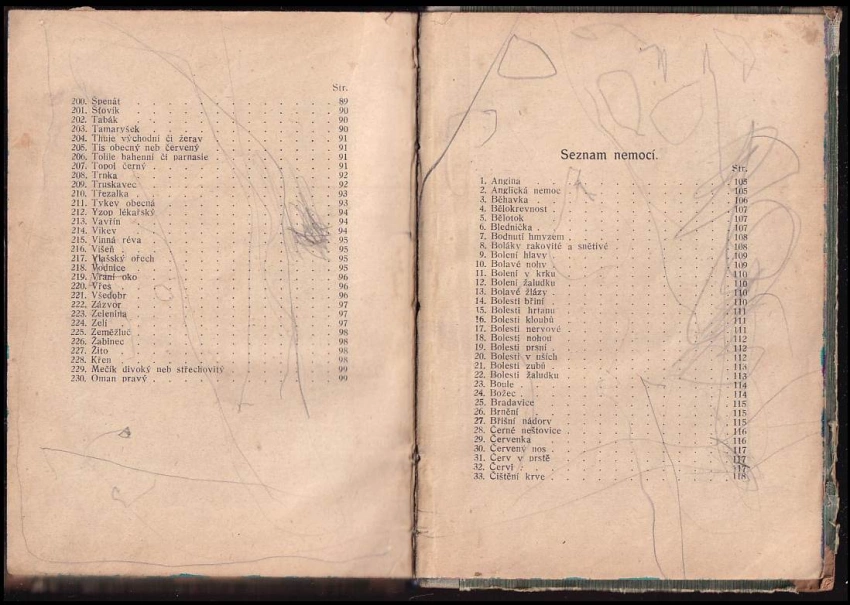 Str.
200. Špenát . . . . . . . . 89
201. Šťovík . . . . . . . . 90
202. Tabák . . . . . . . . 90
203. Tamaryšek . . . . . . . . 90
204. Thuje východní či žerav . . . . . . . . 91
205. Tis obecný neb červený . . . . . . . . 91
206. Tolije bahenní či parnasie . . . . . . . . 91
207. Topol černý . . . . . . . . 91
208. Trnka . . . . . . . . 92
209. Truskavec . . . . . . . . 92
210. Třezalka . . . . . . . . 93
211. Tykev obecná . . . . . . . . 93
212. Yzop lékařský . . . . . . . . 94
213. Vavřín . . . . . . . . 94
214. Vikev . . . . . . . . 94
215. Vinná réva . . . . . . . . 95
216. Višeň . . . . . . . . 95
217. Vlašský ořech . . . . . . . . 95
218. Vodnice . . . . . . . . 95
219. Vraní oko . . . . . . . . 96
220. Vřes . . . . . . . . 96
221. Všedobr . . . . . . . . 96
222. Zázvor . . . . . . . . 97
223. Zelenina . . . . . . . . 97
224. Zelí . . . . . . . . 97
225. Zeměžluč . . . . . . . . 98
226. Žabinec . . . . . . . . 98
227. Žito . . . . . . . . 98
228. Křen . . . . . . . . 98
229. Mečík divoký neb střechovitý . . . . . . . . 99
230. Oman pravý . . . . . . . . 99
Seznam nemocí.
Str.
1. Angina . . . . . . . . 105
2. Anglická nemoc . . . . . . . . 105
3. Běhavka . . . . . . . . 106
4. Bělokrevnost . . . . . . . . 107
5. Bělotok . . . . . . . . 107
6. Blednička . . . . . . . . 107
7. Bodnutí hmyzem . . . . . . . . 108
8. Boláky rakovité a snětivé . . . . . . . . 108
9. Bolení hlavy . . . . . . . . 109
10. Bolavé nohy . . . . . . . . 109
11. Bolení v krku . . . . . . . . 110
12. Bolení žaludku . . . . . . . . 110
13. Bolavé žlázy . . . . . . . . 110
14. Bolesti břiní . . . . . . . . 110
15. Bolesti hrtanu . . . . . . . . 111
16. Bolesti kloubů . . . . . . . . 111
17. Bolesti nervové . . . . . . . . 111
18. Bolesti nohou . . . . . . . . 112
19. Bolesti prsní . . . . . . . . 112
20. Bolesti v uších . . . . . . . . 112
21. Bolesti zubů . . . . . . . . 113
22. Bolesti žaludku . . . . . . . . 113
23. Boule . . . . . . . . 114
24. Božec . . . . . . . . 114
25. Bradavice . . . . . . . . 115
26. Brnění . . . . . . . . 115
27. Břišní nádory . . . . . . . . 115
28. Černé neštovice . . . . . . . . 116
29. Červenka . . . . . . . . 116
30. Červený nos . . . . . . . . 117
31. Červ v prstě . . . . . . . . 117
32. Červi . . . . . . . . 117
33. Čištění krve . . . . . . . . 118